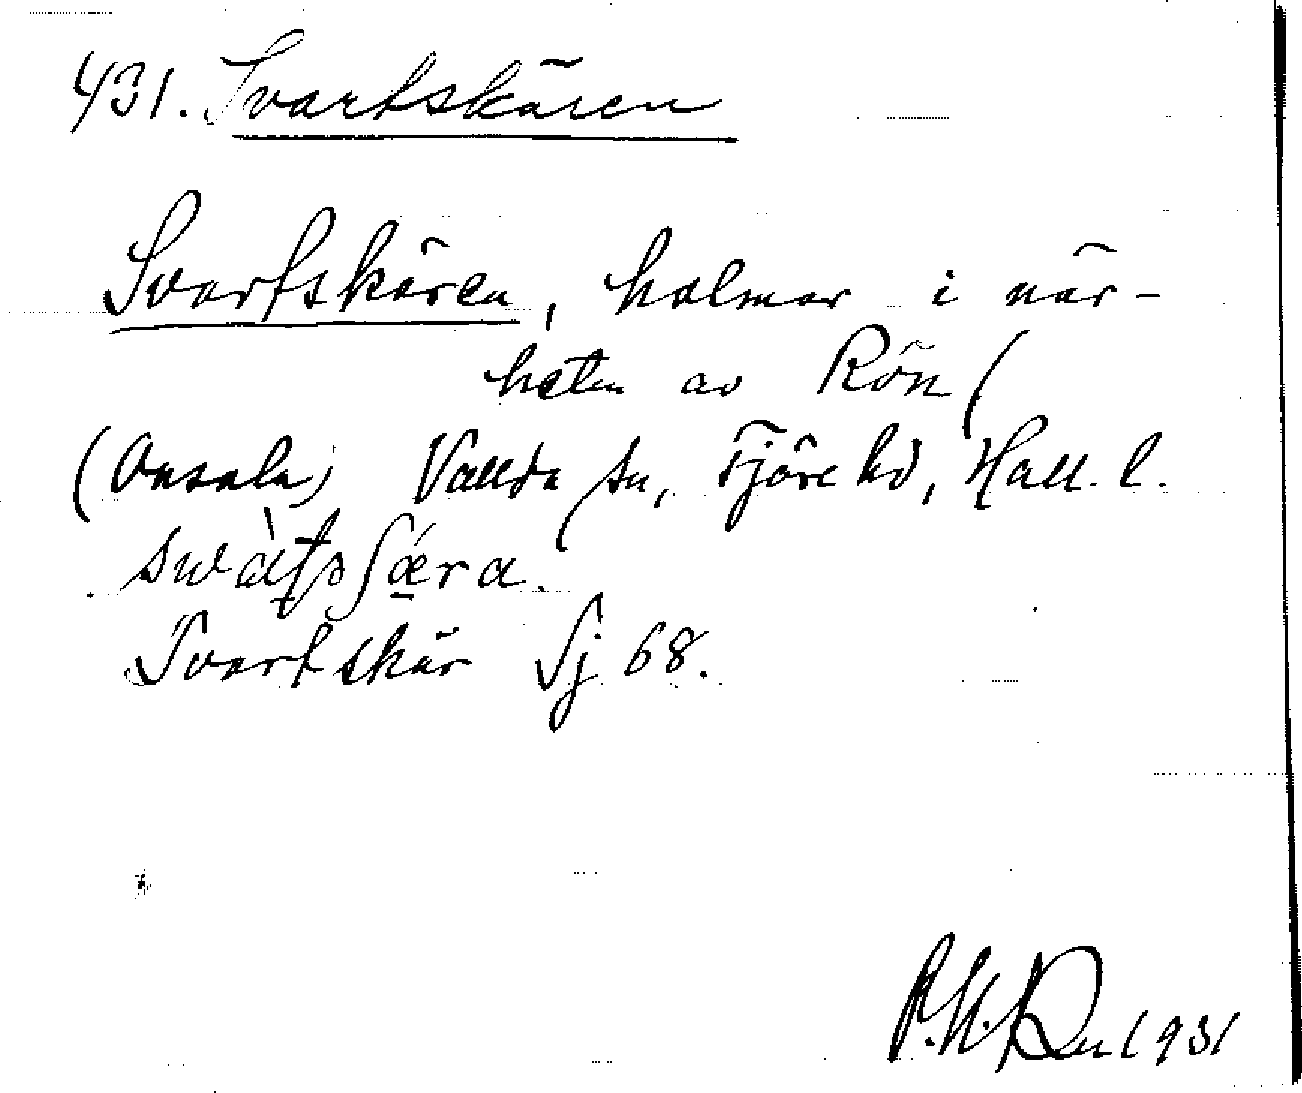 431. Svartskären
Svartskären, holmar i när-
heten av Rön (
(Onsala) Vallda sn, Fjäre hd, Hall. l.
Svartskär Sj 68.
1931